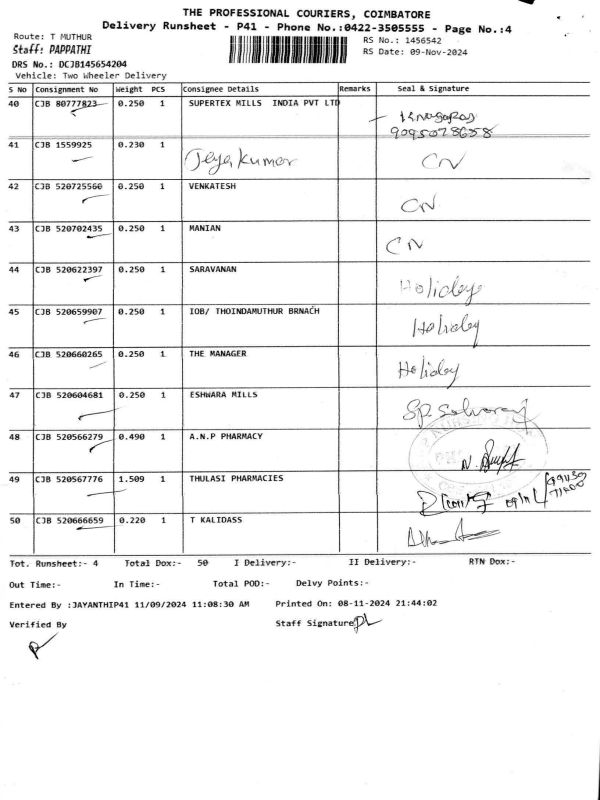 THE PROFESSIONAL COURIERS, COIMBATORE
Delivery Runsheet - P41 - Phone No.:0422-3505555 - Page No.:4
Route: T MUTHUR
RS No.: 1456542
Staff: PAPPATHI
RS Date: 09-Nov-2024
DRS No.: DCJB145654204
Vehicle: Two Wheeler Delivery
S No Consignment No Weight PCS Consignee Details Remarks Seal & Signature
40 CJB 80777823 0.250 1 SUPERTEX MILLS INDIA PVT LTD
9095078658
41 CJB 1559925 0.230 1 Jeyakumar CN
42 CJB 520725560 0.250 1 VENKATESH CN
43 CJB 520702435 0.250 1 MANIAN CN
44 CJB 520622397 0.250 1 SARAVANAN Holiday
45 CJB 520659907 0.250 1 IOB/ THOINDAMUTHUR BRNACH Holiday
46 CJB 520660265 0.250 1 THE MANAGER Holiday
47 CJB 520604681 0.250 1 ESHWARA MILLS
48 CJB 520566279 0.490 1 A.N.P PHARMACY
49 CJB 520567776 1.509 1 THULASI PHARMACIES
50 CJB 520666659 0.220 1 T KALIDASS
Tot. Runsheet:- 4 Total Dox:- 50 I Delivery:- II Delivery:- RTN Dox:-
Out Time:- In Time:- Total POD:- Delvy Points:-
Entered By :JAYANTHIP41 11/09/2024 11:08:30 AM Printed On: 08-11-2024 21:44:02
Verified By Staff Signature